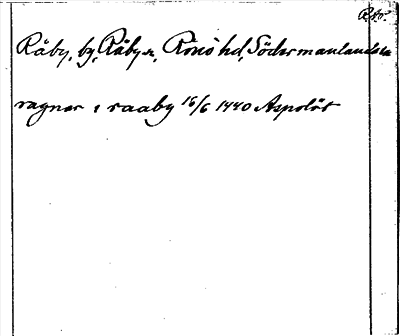 Råby, by, Råby sn, Rönö hd, Södermanlands ln
ragnar i raaby 16/6 1440 Aspolöt